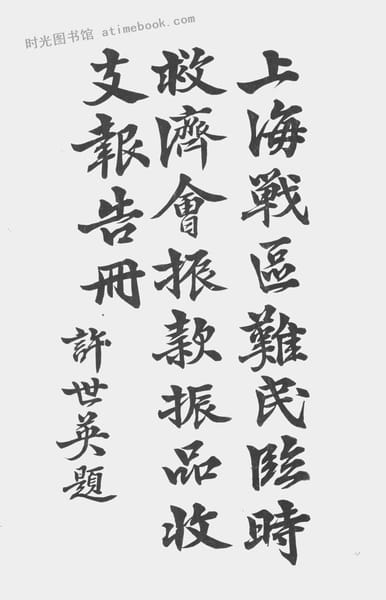 时光图书馆 atimebook.com
上海戰區難民臨時
救濟會振款振品收
支報告冊
許世英題